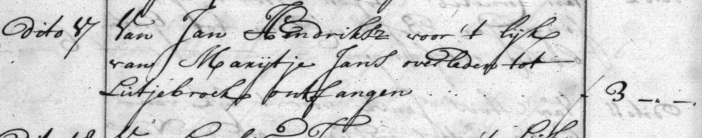 dito 17 Van Jan Hendriksz voor 't lijk
van Marijtje Jans overleden tot
Lutjebroek ontfangen . . . . . f 3 –.–.